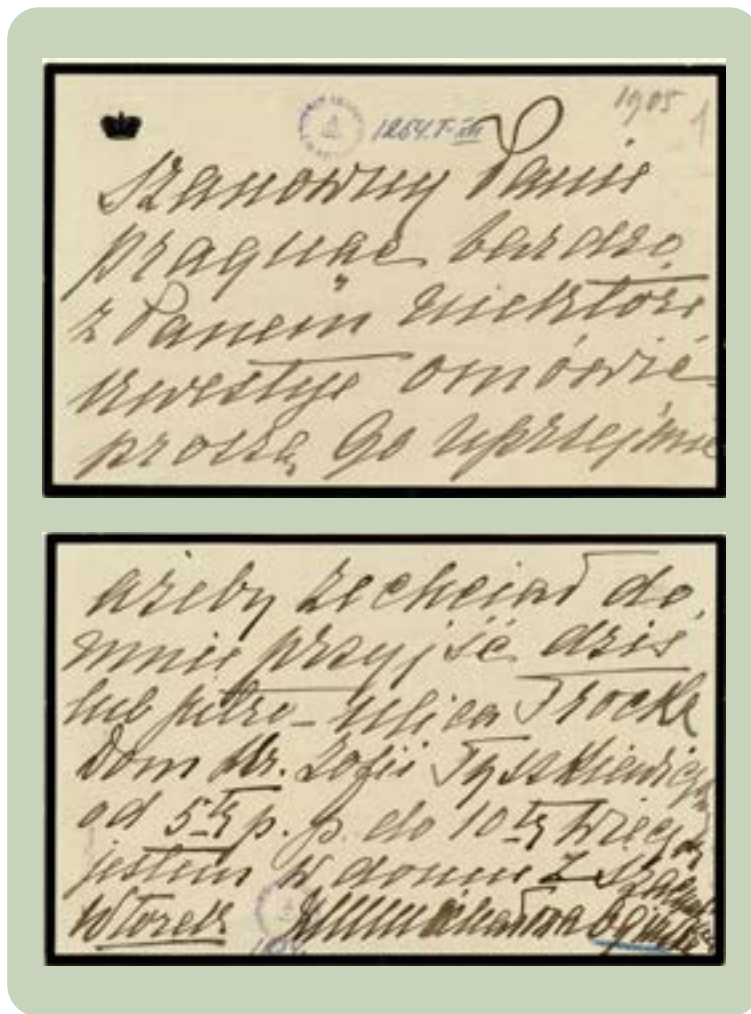 1905
1
1264.I-III
Szanowny Panie
pragnąc bardzo
z Panem niektóre
kwestye omówić
proszę Go uprzejmie
ażeby zechciał do
mnie przyjść dziś
lub jutro – ulica Trocka
Dom Hr. Zofii Tyszkiewicz
od 5tej p. p. do 10tej wiecz
jestem w domu z szac
Wtorek